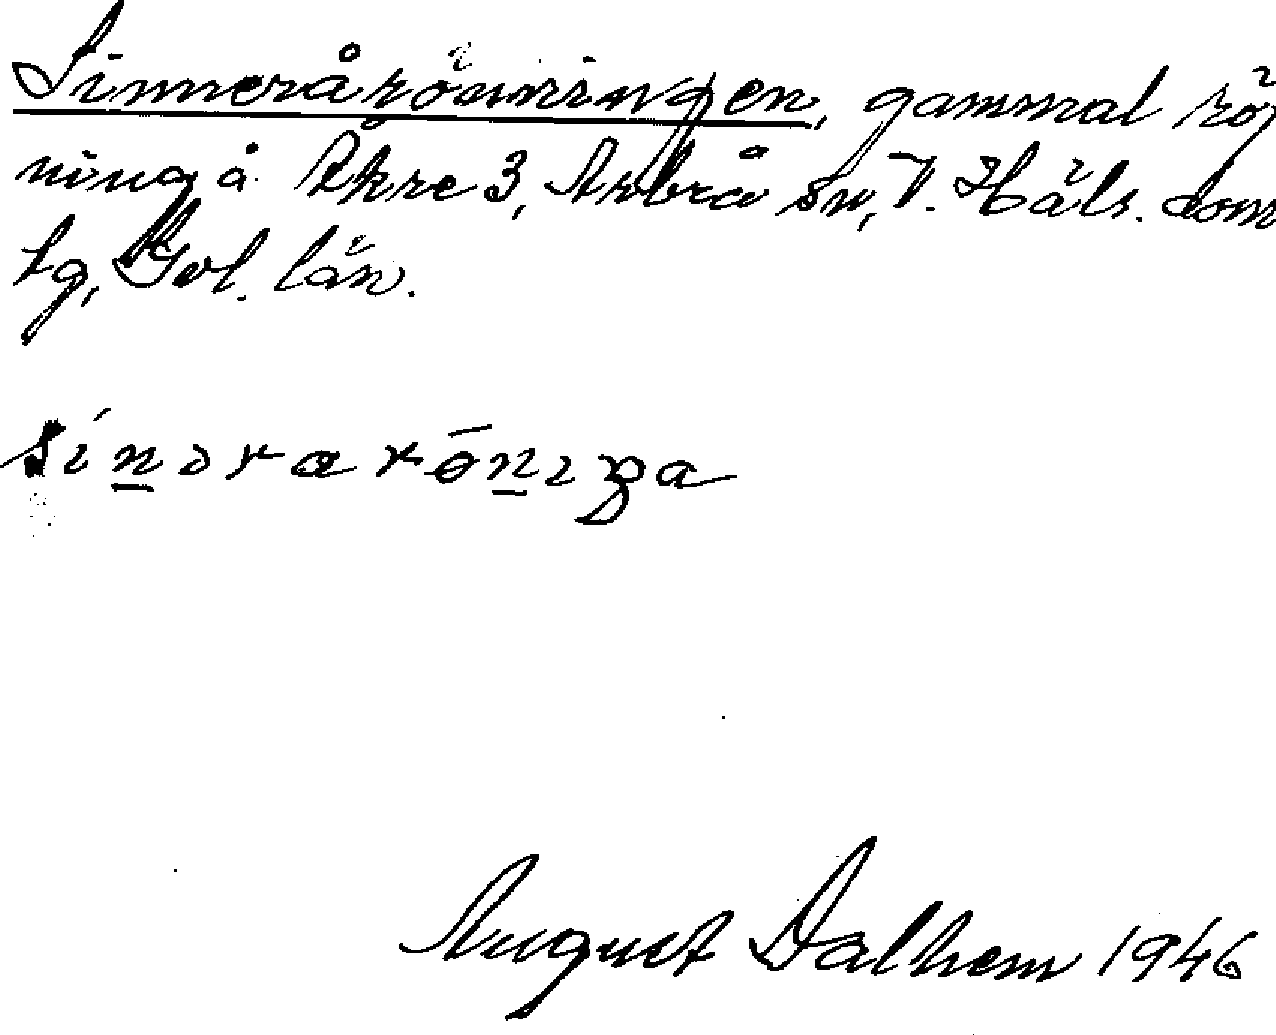 Sinneråröunningen, gammal röj
ning å Åkre 3, Arbrå sn, V. Häls. dom
sg, Gvl. län.
August Dalhem 1946